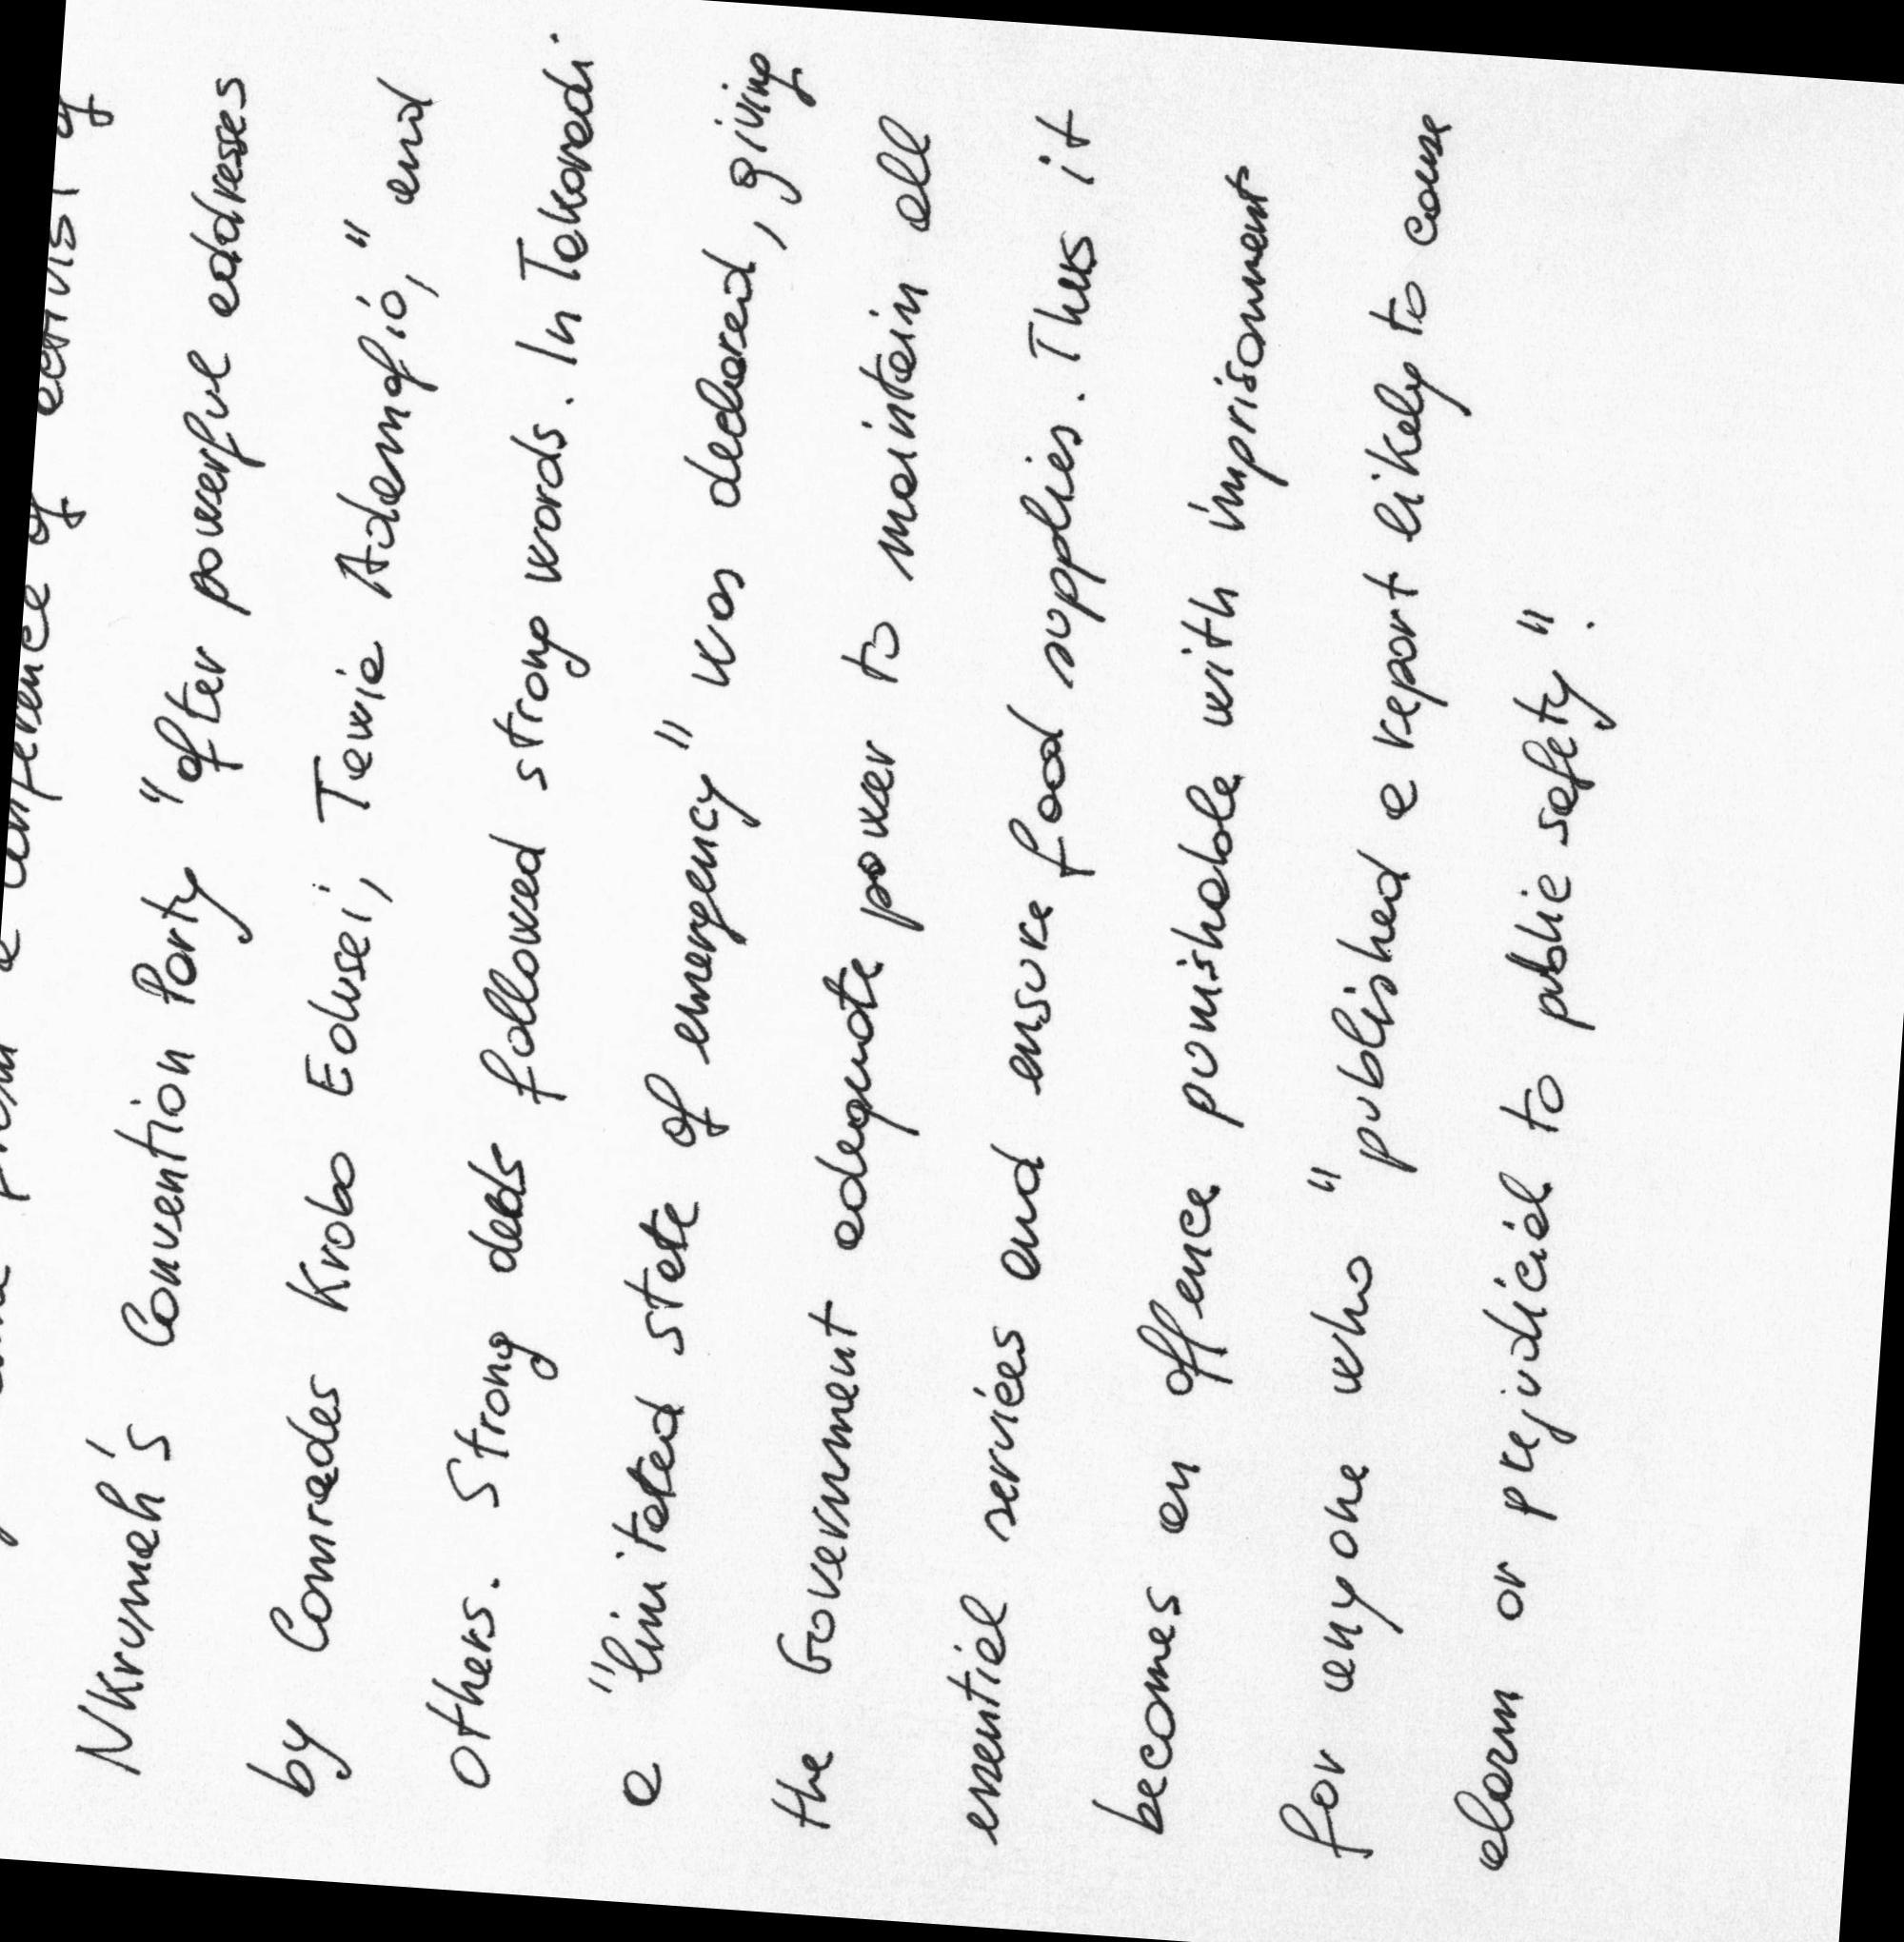 conference of activist of
Nkrumah's Convention Party "after powerful addresses
by Comrades Krobo Edusei, Tawia Adamafio," and
others. Strong deeds followed strong words. In Takoradi
a "limited state of emergency" was declared, giving
the Government adequate power to maintain all
essential services and ensure food supplies. Thus it
becomes an offence punishable with imprisonment
for anyone who "published a report likely to cause
alarm or prejudicial to public safety".